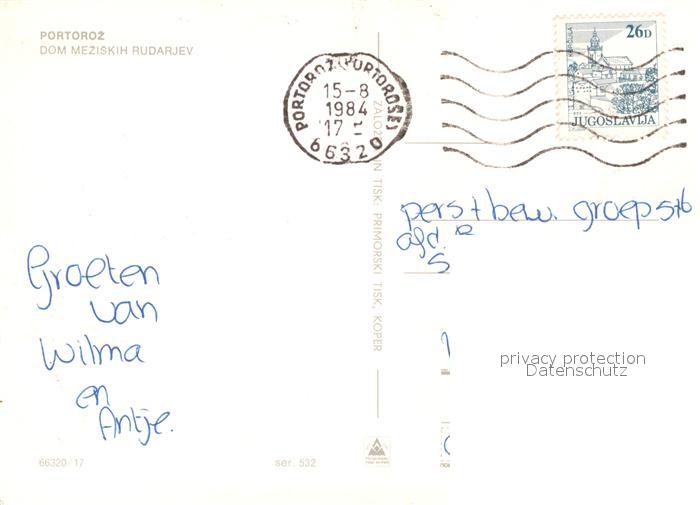 PORTOROŽ
DOM MEŽIŠKIH RUDARJEV
PORTOROŽ (PORTOROSE)
15-8
1984
17
66320
26D
JUGOSLAVIJA
ZALOŽ IN TISK: PRIMORSKI TISK, KOPER
pers + bew. groep
afd.
Groeten
van
Wilma
en
Antje.
privacy protection
Datenschutz
66320/17
ser. 532